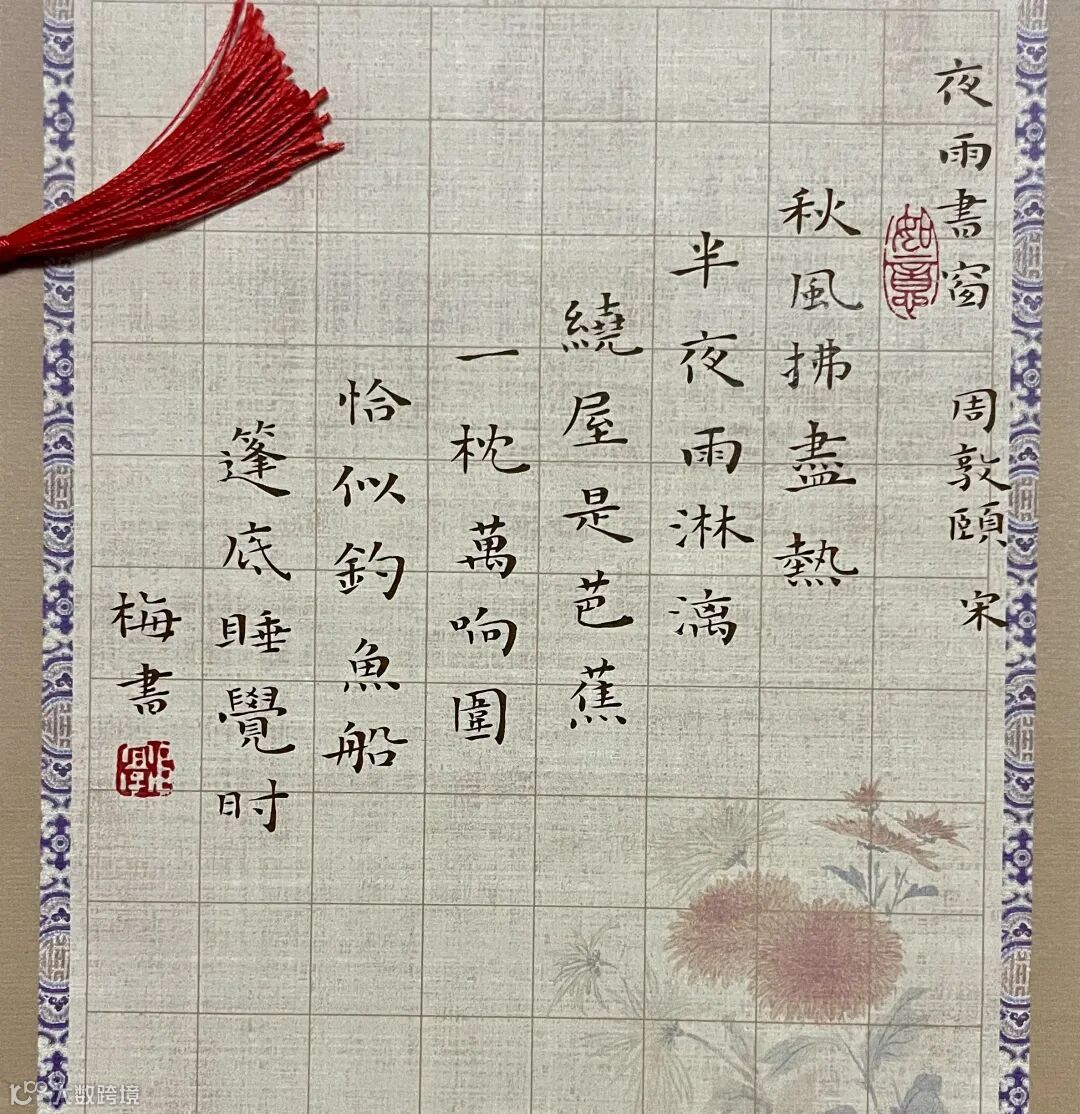 夜雨書窗 周敦頤 宋
如意
秋風拂盡熱
半夜雨淋漓
繞屋是芭蕉
一枕萬响圍
恰似釣魚船
篷底睡覺时
梅書
大数跨境